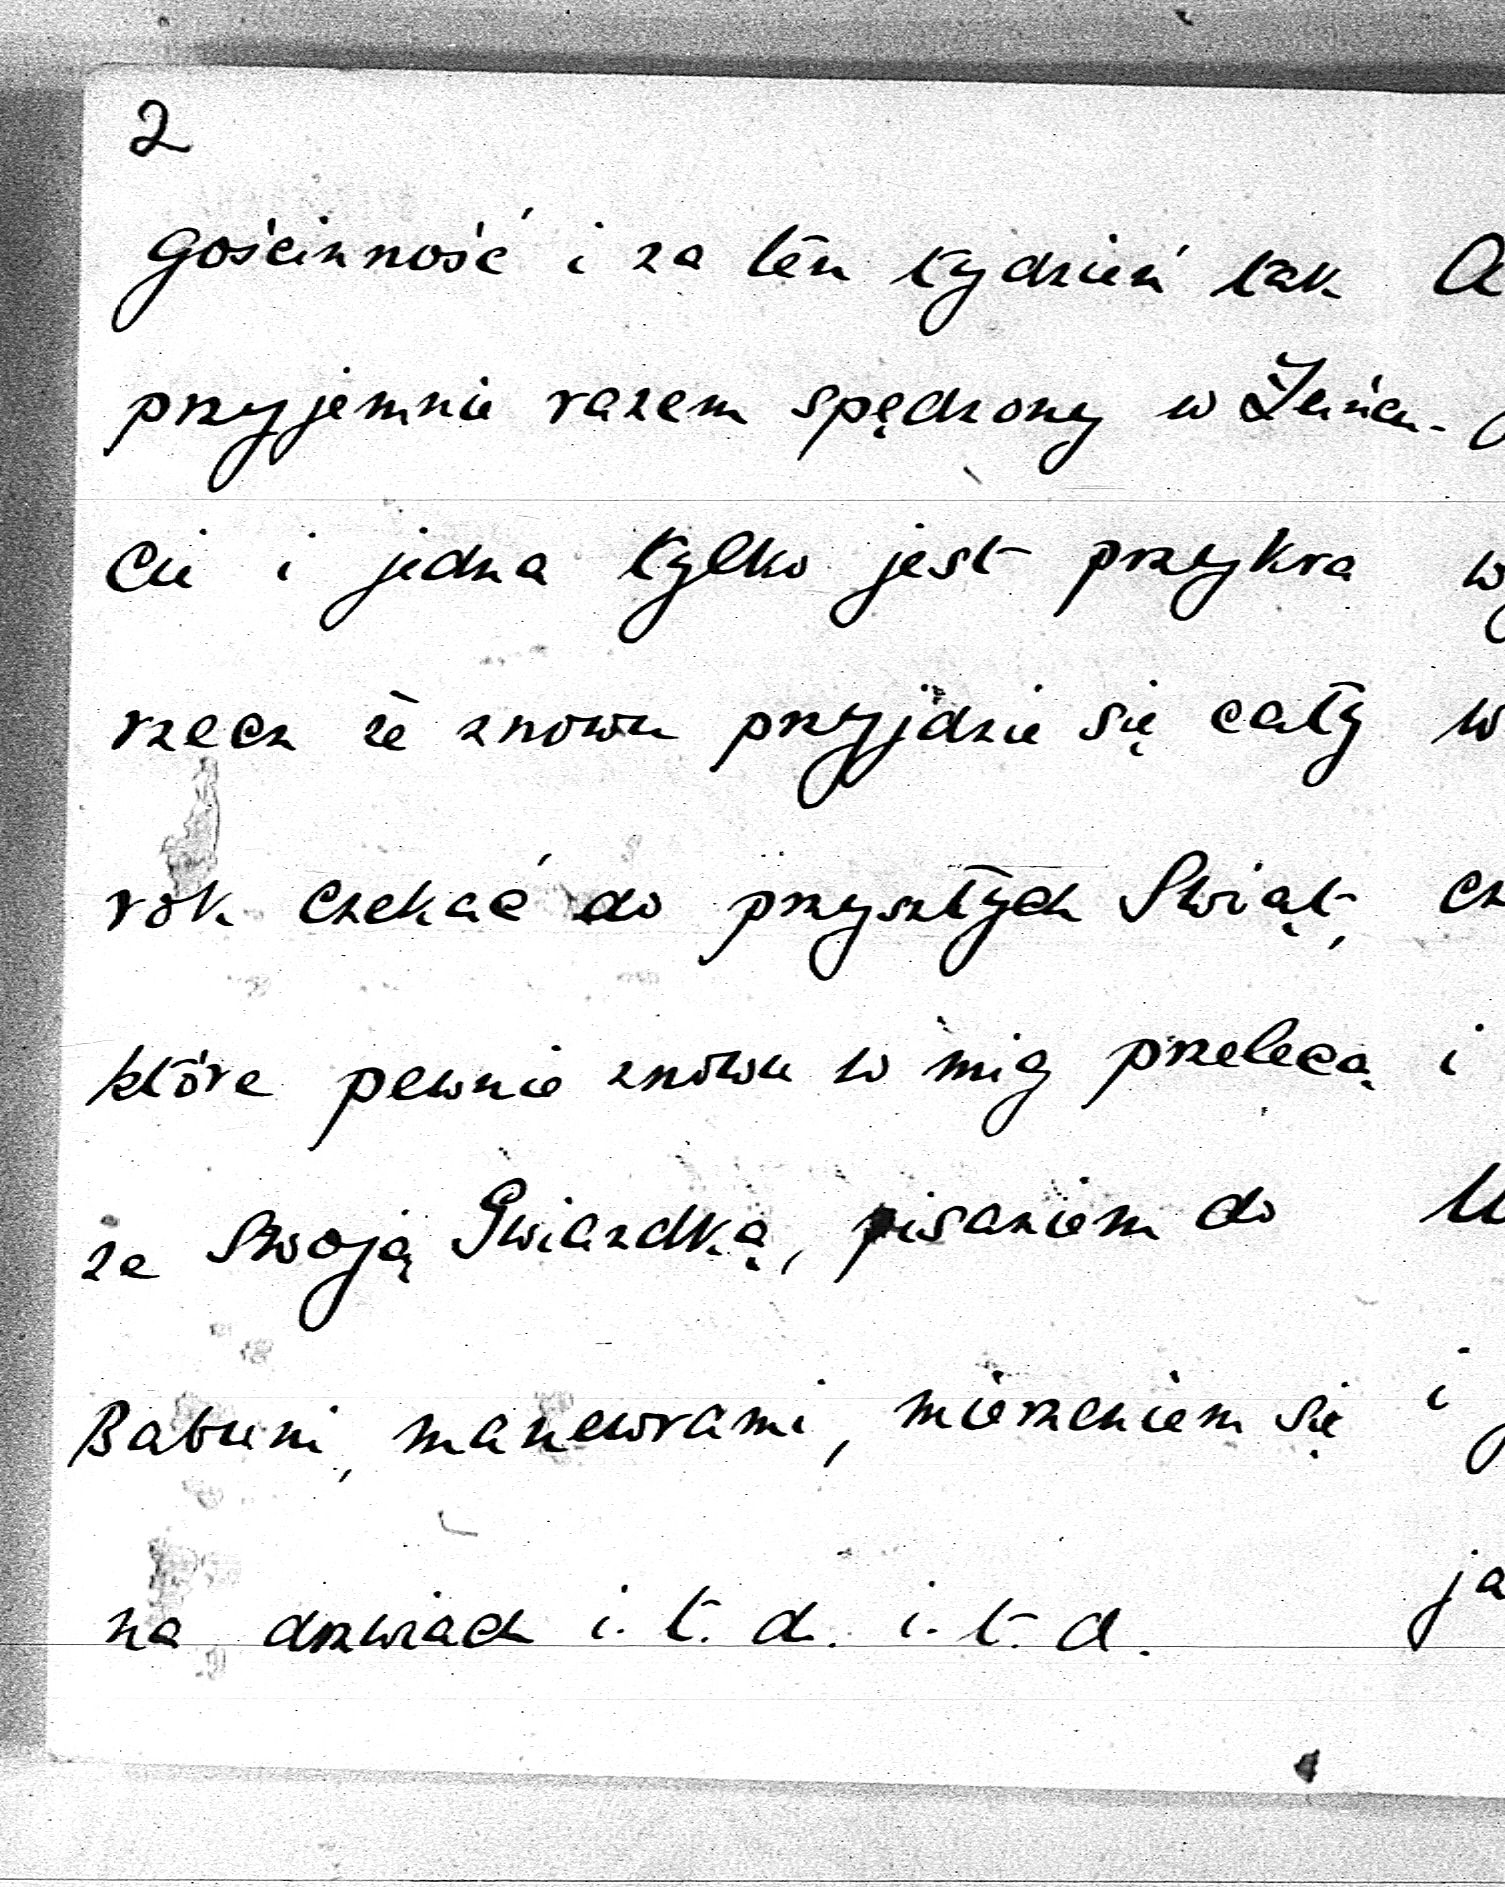 2
gościnność i za ten tydzień tak
przyjemnie razem spędzony w
cie i jedna tylko jest przykra
rzecz że znowu przyjdzie się cały
rok czekać do przyszłych Świąt,
które pewnie znowu w mig przelecą i
ze Swoją Gwiazdką, pisaniem do
Babuni, manewrami, mierzeniem się i
na drzwiach i. t. d. i. t. d. ja